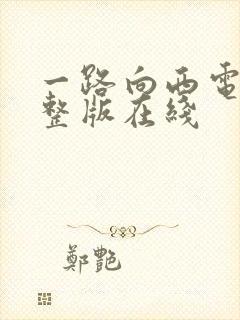 一路向西電
整版在綫
鄭艷